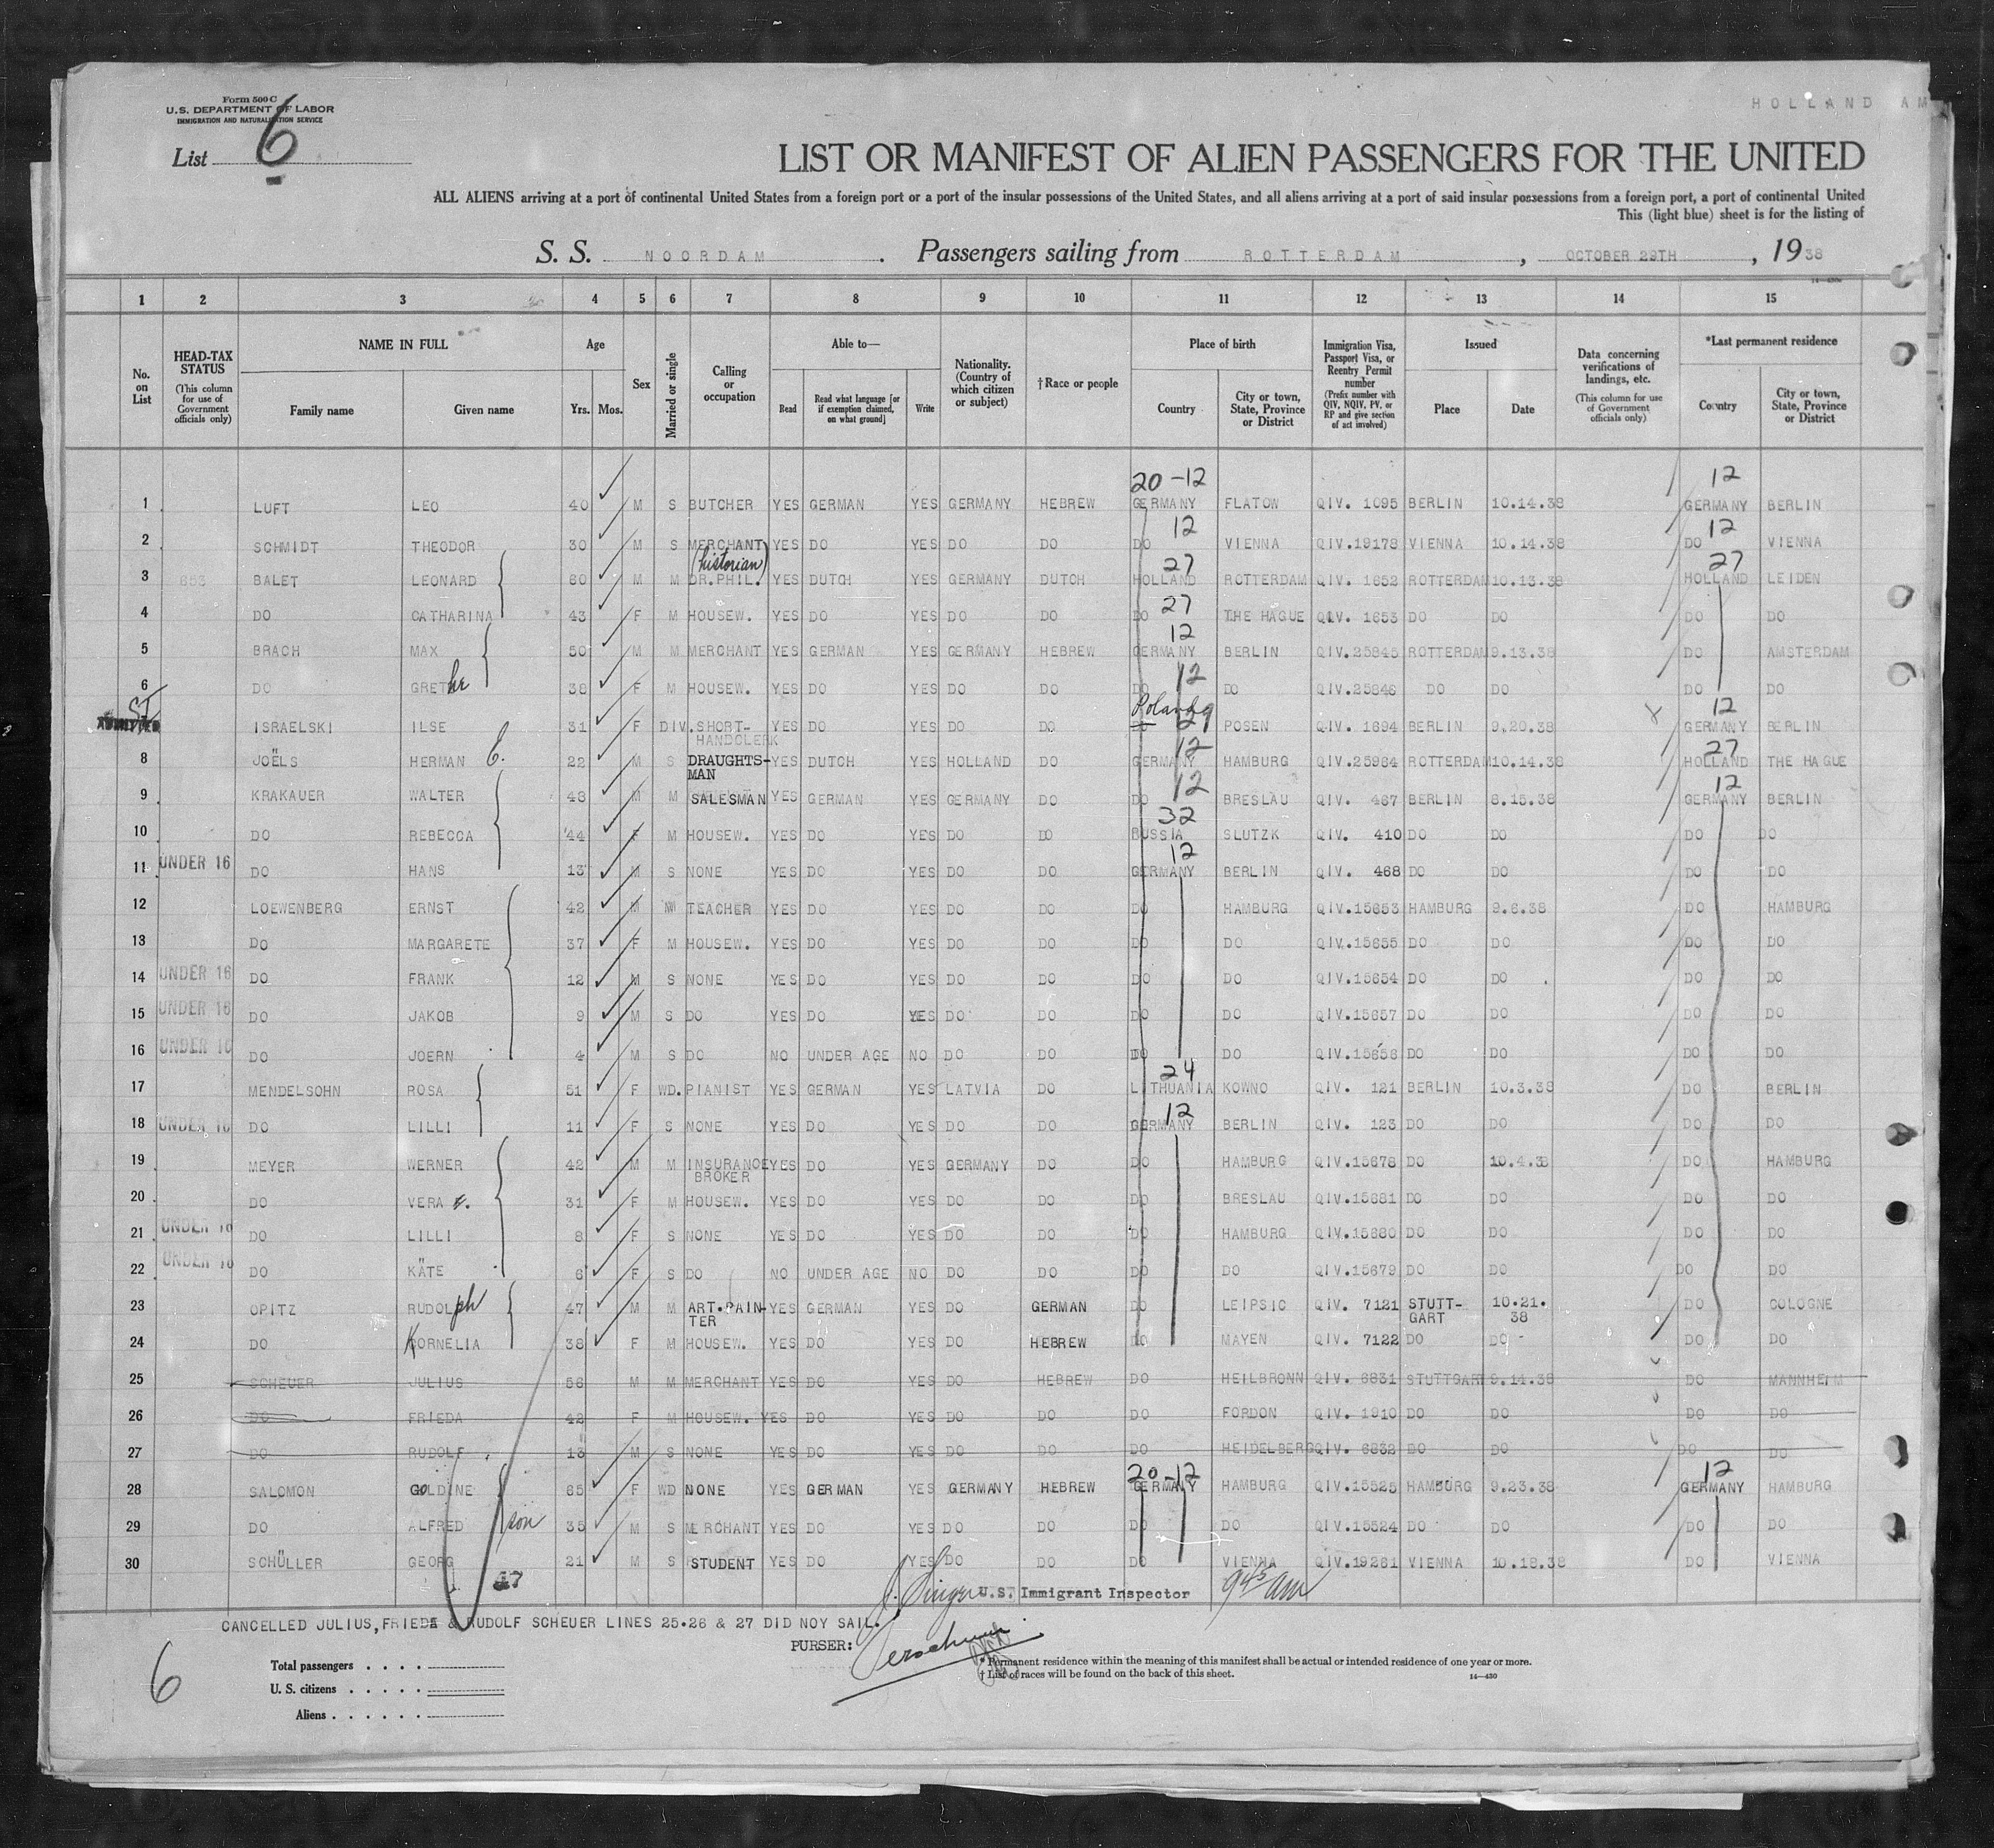 Form 500 C
U.S. DEPARTMENT OF LABOR
IMMIGRATION AND NATURALIZATION SERVICE
HOLLAND AM
List 6
LIST OR MANIFEST OF ALIEN PASSENGERS FOR THE UNITED
ALL ALIENS arriving at a port of continental United States from a foreign port or a port of the insular possessions of the United States, and all aliens arriving at a port of said insular possessions from a foreign port, a port of continental United
This (light blue) sheet is for the listing of
S. S. NOORDAM. Passengers sailing from ROTTERDAM, OCTOBER 29TH, 1938
1 2 3 4 5 6 7 8 9 10 11 12 13 14 15
No. on List
HEAD-TAX STATUS (This column for use of Government officials only)
NAME IN FULL Family name Given name
Age Yrs. Mos.
Sex
Married or single
Calling or occupation
Able to— Read Read what language [or if exemption claimed, on what ground] Write
Nationality. (Country of which citizen or subject)
†Race or people
Place of birth Country City or town, State, Province or District
Immigration Visa, Passport Visa, or Reentry Permit number (Prefix number with QIV, NQIV, PV, or RP and give section of act involved)
Issued Place Date
Data concerning verifications of landings, etc. (This column for use of Government officials only)
*Last permanent residence Country City or town, State, Province or District
20-12 12
1 LUFT LEO 40 M S BUTCHER YES GERMAN YES GERMANY HEBREW GERMANY FLATOW QIV. 1095 BERLIN 10.14.38 GERMANY BERLIN
12 12
2 SCHMIDT THEODOR 30 M S MERCHANT YES DO YES DO DO DO VIENNA QIV.19178 VIENNA 10.14.38 DO VIENNA
(historian) 27 27
3 653 BALET LEONARD 60 M M DR.PHIL. YES DUTCH YES GERMANY DUTCH HOLLAND ROTTERDAM QIV. 1652 ROTTERDAM 10.13.38 HOLLAND LEIDEN
27
4 DO CATHARINA 43 F M HOUSEW. YES DO YES DO DO DO THE HAGUE QIV. 1653 DO DO DO DO
12
5 BRACH MAX 50 M M MERCHANT YES GERMAN YES GERMANY HEBREW GERMANY BERLIN QIV.25845 ROTTERDAM 9.13.38 DO AMSTERDAM
12
6 DO GRETHE 38 F M HOUSEW. YES DO YES DO DO DO DO QIV.25846 DO DO DO DO
SI Poland 29 12
ADMITTED ISRAELSKI ILSE 31 F DIV. SHORT- YES DO YES DO DO DO POSEN QIV. 1694 BERLIN 9.20.38 GERMANY BERLIN
HANDCLERK 12 27
8 JOËLS HERMAN E. 22 M S DRAUGHTS- YES DUTCH YES HOLLAND DO GERMANY HAMBURG QIV.25964 ROTTERDAM 10.14.38 HOLLAND THE HAGUE
MAN 12 12
9 KRAKAUER WALTER 48 M M SALESMAN YES GERMAN YES GERMANY DO DO BRESLAU QIV. 467 BERLIN 8.15.38 GERMANY BERLIN
32
10 DO REBECCA 44 F M HOUSEW. YES DO YES DO DO RUSSIA SLUTZK QIV. 410 DO DO DO DO
12
11 UNDER 16 DO HANS 13 M S NONE YES DO YES DO DO GERMANY BERLIN QIV. 468 DO DO DO DO
12 LOEWENBERG ERNST 42 M M TEACHER YES DO YES DO DO DO HAMBURG QIV.15653 HAMBURG 9.6.38 DO HAMBURG
13 DO MARGARETE 37 F M HOUSEW. YES DO YES DO DO DO DO QIV.15655 DO DO DO DO
14 UNDER 16 DO FRANK 12 M S NONE YES DO YES DO DO DO DO QIV.15654 DO DO DO DO
15 UNDER 16 DO JAKOB 9 M S DO YES DO YES DO DO DO DO QIV.15657 DO DO DO DO
16 UNDER 16 DO JOERN 4 M S DO NO UNDER AGE NO DO DO DO DO QIV.15656 DO DO DO DO
24
17 MENDELSOHN ROSA 51 F WD. PIANIST YES GERMAN YES LATVIA DO LITHUANIA KOWNO QIV. 121 BERLIN 10.3.38 DO BERLIN
12
18 UNDER 16 DO LILLI 11 F S NONE YES DO YES DO DO GERMANY BERLIN QIV. 123 DO DO DO DO
19 MEYER WERNER 42 M M INSURANCE YES DO YES GERMANY DO DO HAMBURG QIV.15678 DO 10.4.38 DO HAMBURG
BROKER
20 DO VERA E. 31 F M HOUSEW. YES DO YES DO DO DO BRESLAU QIV.15681 DO DO DO DO
21 UNDER 16 DO LILLI 8 F S NONE YES DO YES DO DO DO HAMBURG QIV.15680 DO DO DO DO
22 UNDER 16 DO KÄTE 6 F S DO NO UNDER AGE NO DO DO DO DO QIV.15679 DO DO DO DO
23 OPITZ RUDOLPH 47 M M ART.PAIN- YES GERMAN YES DO GERMAN DO LEIPSIC QIV. 7121 STUTT- 10.21. DO COLOGNE
TER GART 38
24 DO KORNELIA 38 F M HOUSEW. YES DO YES DO HEBREW DO MAYEN QIV. 7122 DO DO DO DO
25 SCHEUER JULIUS 56 M M MERCHANT YES DO YES DO HEBREW DO HEILBRONN QIV. 6831 STUTTGART 9.14.38 DO MANNHEIM
26 DO FRIEDA 42 F M HOUSEW. YES DO YES DO DO DO FORDON QIV. 1910 DO DO DO DO
27 DO RUDOLF 13 M S NONE YES DO YES DO DO DO HEIDELBERG QIV. 6832 DO DO DO DO
20-12 12
28 SALOMON GOLDINE 65 F WD NONE YES GERMAN YES GERMANY HEBREW GERMANY HAMBURG QIV.15525 HAMBURG 9.23.38 GERMANY HAMBURG
29 DO ALFRED son 35 M S MERCHANT YES DO YES DO DO DO DO QIV.15524 DO DO DO DO
30 SCHÜLLER GEORG 21 M S STUDENT YES DO YES DO DO DO VIENNA QIV.19261 VIENNA 10.18.38 DO VIENNA
J. Singer U.S. Immigrant Inspector 945 am
CANCELLED JULIUS, FRIEDA & RUDOLF SCHEUER LINES 25.26 & 27 DID NOY SAIL.
PURSER:
6
Total passengers
U. S. citizens
Aliens
* Permanent residence within the meaning of this manifest shall be actual or intended residence of one year or more.
† List of races will be found on the back of this sheet.
14—430